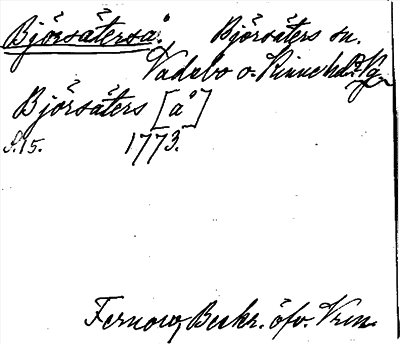 Björsäterså, Björsäters sn.
Vadsbo o. Kinne hd. Vg
Björsäters [å]
S. 15. 1773.
Fernow, Beskr. öfv. Vrm.